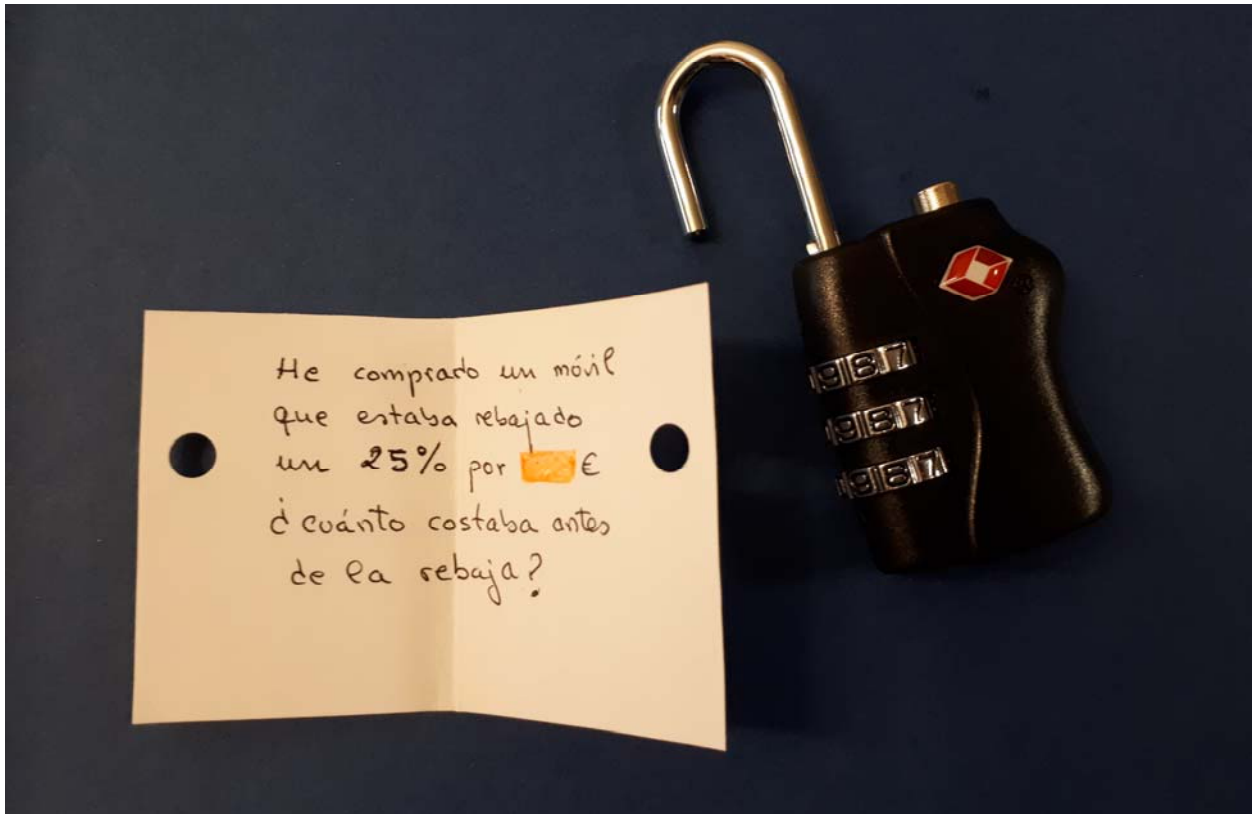 He comprado un móvil
que estaba rebajado
un 25% por €
¿cuánto costaba antes
de la rebaja?
987
987
987